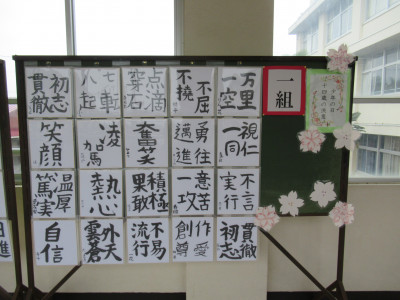 一組
万里
一空
不屈
不撓
点滴
穿石
七転
八起
初志
貫徹
一視
同仁
勇往
邁進
凌駕
笑顔
不言
実行
一意
攻苦
積極
果敢
熱心
温厚
篤実
貫徹
初志
不易
流行
雲外
蒼天
自信
日進